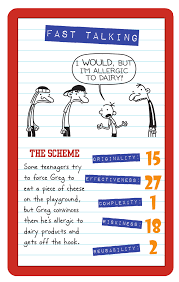 FAST TALKING
I WOULD, BUT
I'M ALLERGIC
TO DAIRY!
THE SCHEME
Some teenagers try
to force Greg to
eat a piece of cheese
on the playground,
but Greg convinces
them he's allergic to
dairy products and
gets off the hook.
ORIGINALITY: 15
EFFECTIVENESS: 27
COMPLEXITY: 1
RISKINESS: 18
REUSABILITY: 2